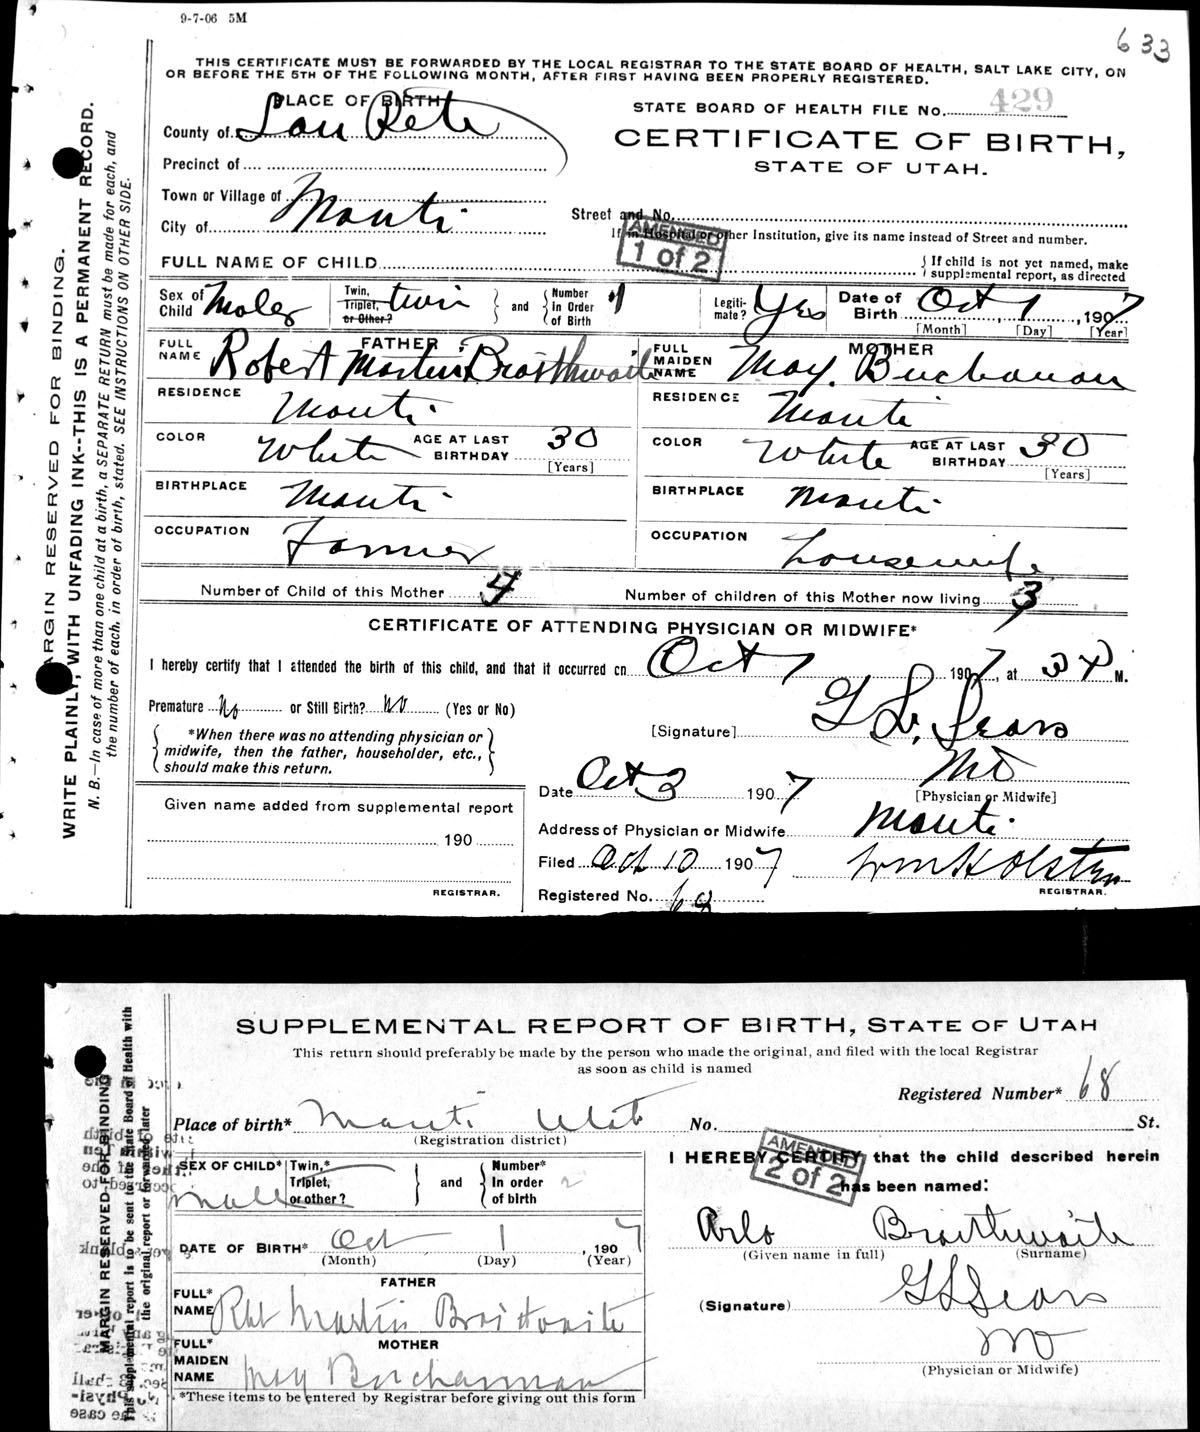 9-7-06 5M
633
THIS CERTIFICATE MUST BE FORWARDED BY THE LOCAL REGISTRAR TO THE STATE BOARD OF HEALTH, SALT LAKE CITY, ON
OR BEFORE THE 5TH OF THE FOLLOWING MONTH, AFTER FIRST HAVING BEEN PROPERLY REGISTERED.
PLACE OF BIRTH
STATE BOARD OF HEALTH FILE No. 429
County of San Pete
CERTIFICATE OF BIRTH,
STATE OF UTAH.
Precinct of
Town or Village of Manti
City of
Street and No.
If in Hospital or other Institution, give its name instead of Street and number.
AMENDED
1 of 2
FULL NAME OF CHILD
{ If child is not yet named, make
supplemental report, as directed
Sex of Child Male
Twin, Triplet, or Other? twin
and
Number in Order of Birth 1
Legitimate? Yes
Date of Birth Oct 1, 1907
[Month] [Day] [Year]
FATHER
FULL NAME Robert Martin Braithwaite
MOTHER
FULL MAIDEN NAME May Buchanan
RESIDENCE Manti
RESIDENCE Manti
COLOR White AGE AT LAST BIRTHDAY 30
[Years]
COLOR White AGE AT LAST BIRTHDAY 30
[Years]
BIRTHPLACE Manti
BIRTHPLACE Manti
OCCUPATION Farmer
OCCUPATION Housewife
Number of Child of this Mother 4
Number of children of this Mother now living 3
CERTIFICATE OF ATTENDING PHYSICIAN OR MIDWIFE*
I hereby certify that I attended the birth of this child, and that it occurred on Oct 1 1907, at M.
Premature No or Still Birth? No (Yes or No)
[Signature] G L Sears
MD
[Physician or Midwife]
{ *When there was no attending physician or
midwife, then the father, householder, etc.,
should make this return. }
Date Oct 3 1907
Address of Physician or Midwife Manti
Given name added from supplemental report
190
REGISTRAR.
Filed Oct 10 1907
Wm K Olsten
REGISTRAR.
Registered No. 68
MARGIN RESERVED FOR BINDING.
WRITE PLAINLY, WITH UNFADING INK--THIS IS A PERMANENT RECORD.
N. B.—In case of more than one child at a birth, a SEPARATE RETURN must be made for each, and
the number of each, in order of birth, stated. SEE INSTRUCTIONS ON OTHER SIDE.
SUPPLEMENTAL REPORT OF BIRTH, STATE OF UTAH
This return should preferably be made by the person who made the original, and filed with the local Registrar
as soon as child is named
Registered Number* 68
Place of birth* Manti Utah No. St.
(Registration district)
SEX OF CHILD* Male
Twin,* Triplet, or other?
and
Number* In order of birth 2
I HEREBY CERTIFY that the child described herein
has been named:
AMENDED
2 of 2
Arlo Braithwaite
(Given name in full) (Surname)
DATE OF BIRTH* Oct 1, 1907
(Month) (Day) (Year)
FATHER
FULL* NAME Rbt Martin Braitwaite
(Signature) G L Sears
MD
(Physician or Midwife)
MOTHER
FULL* MAIDEN NAME May Buchannan
*These items to be entered by Registrar before giving out this form
MARGIN RESERVED FOR BINDING
This supplemental report is to be sent to the State Board of Health with
the original report or forwarded later